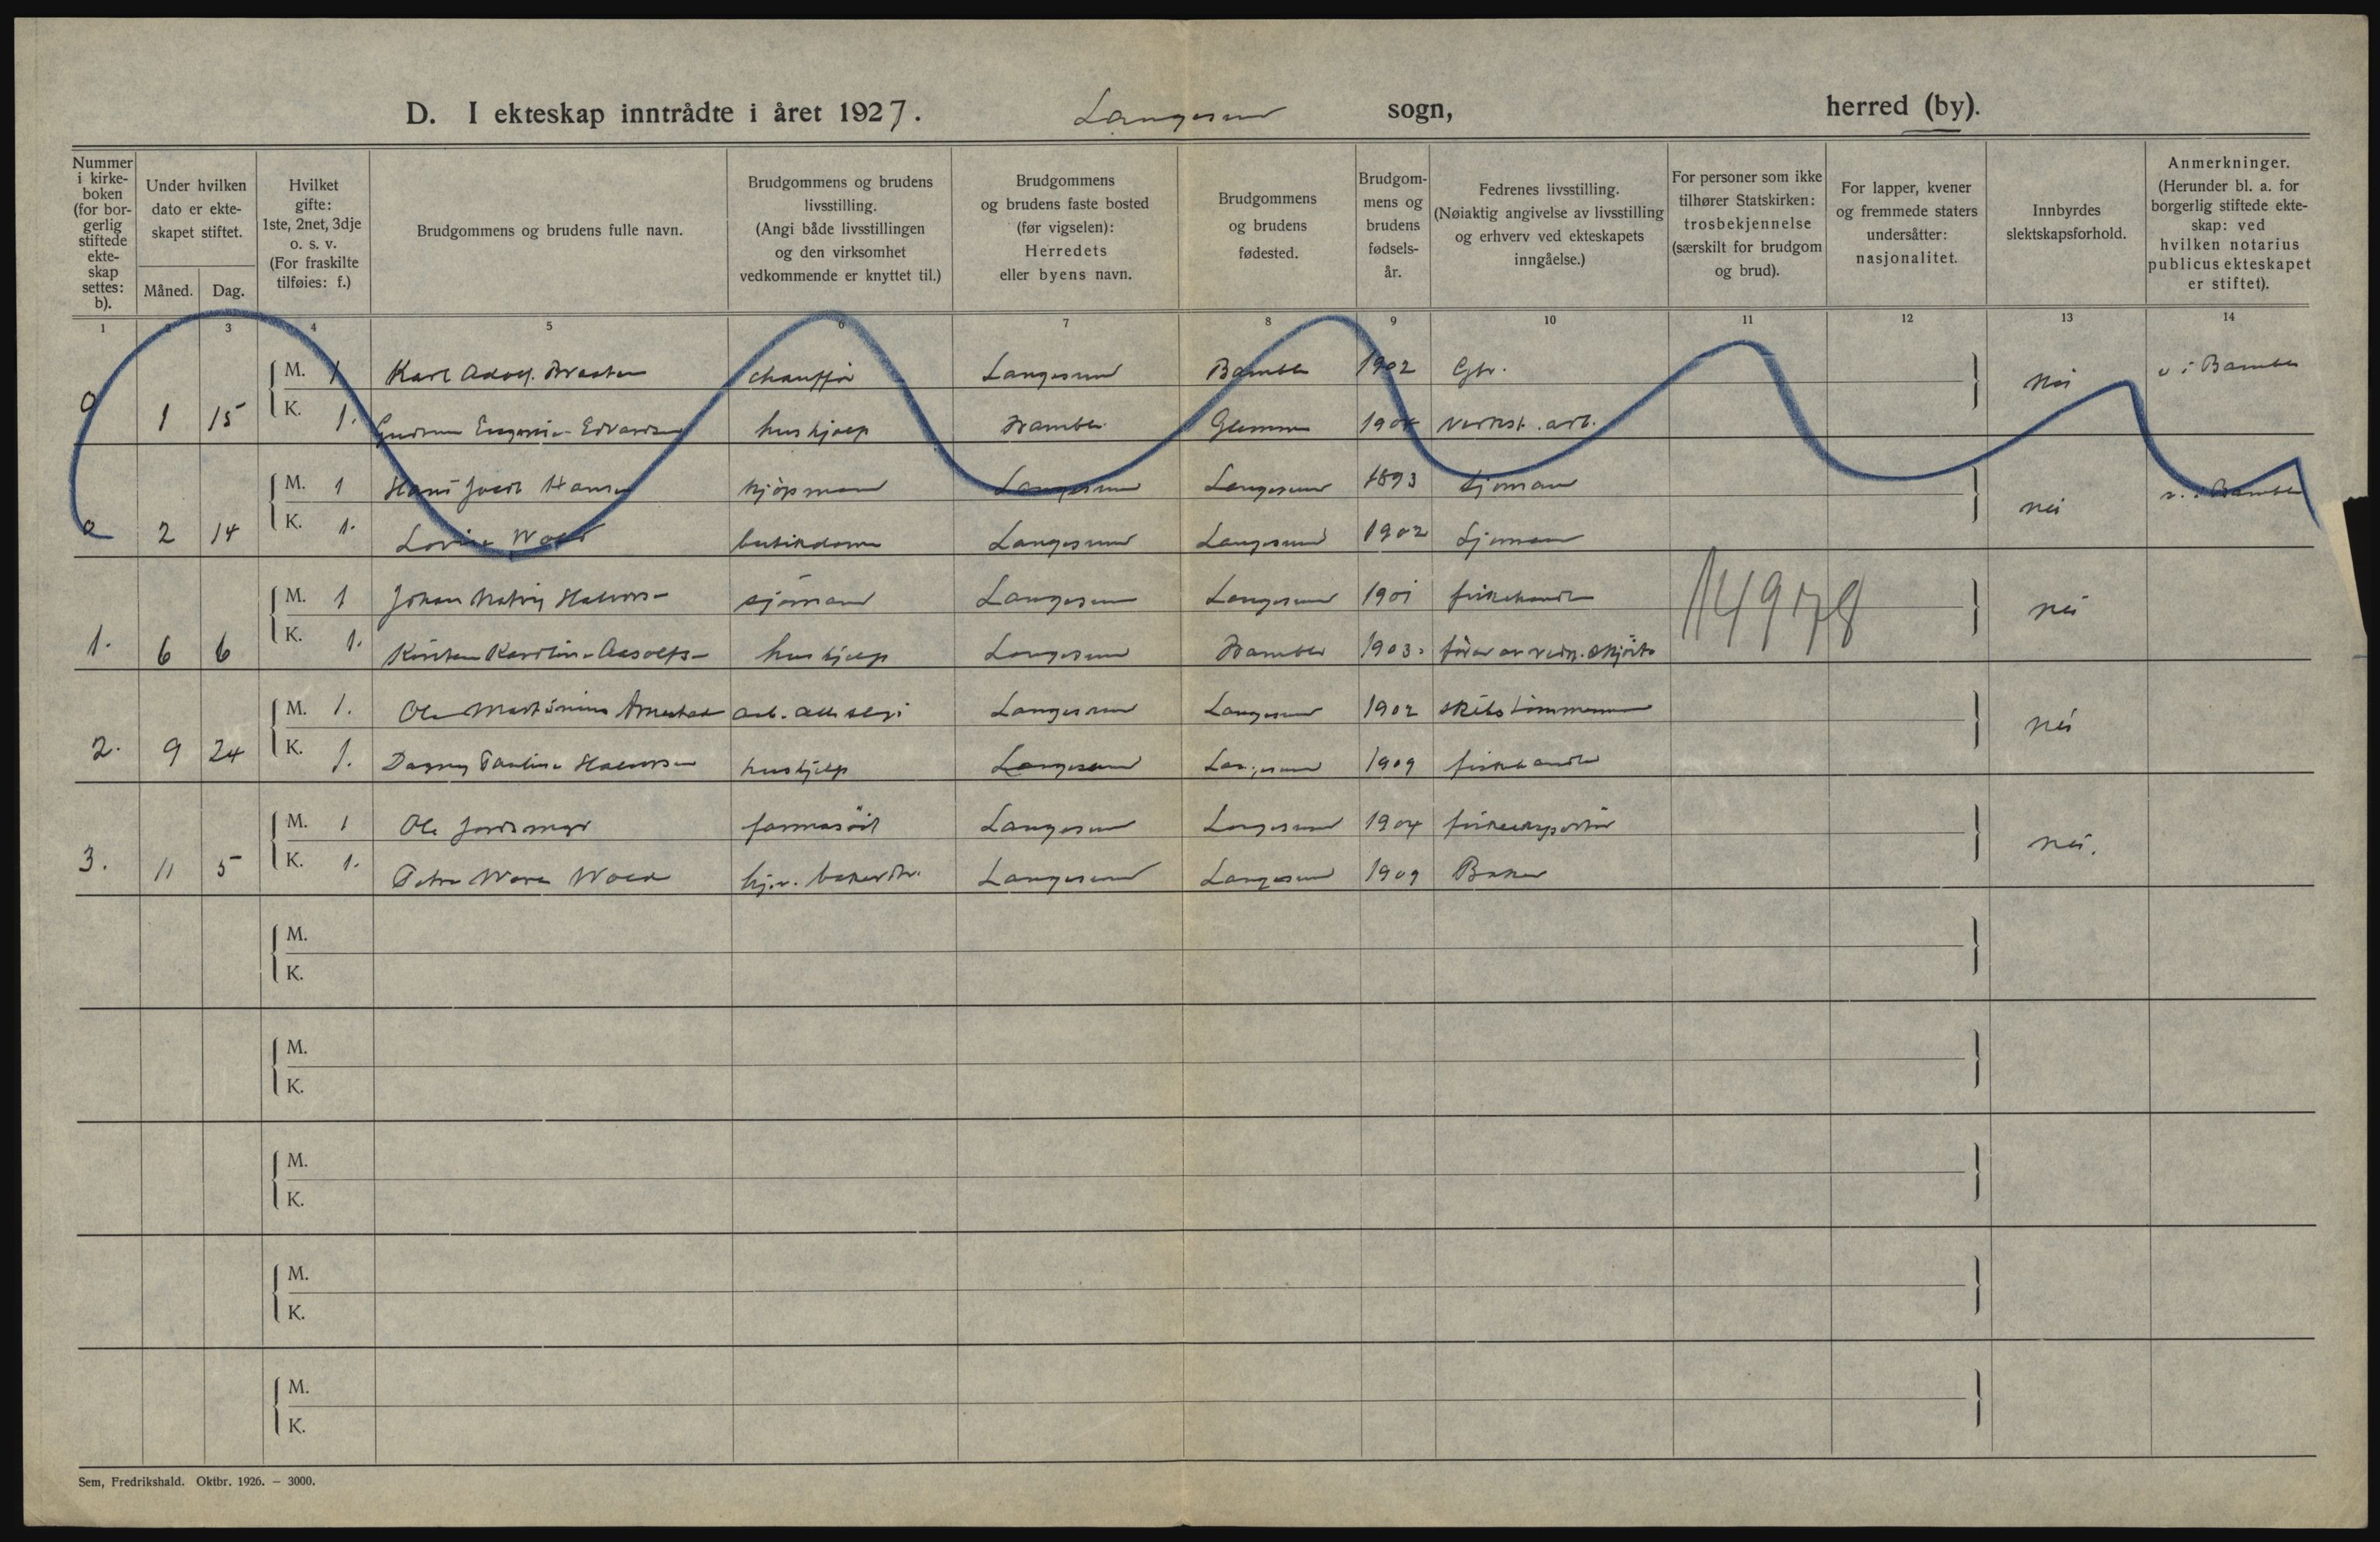 D. I ekteskap inntrådte i året 1927. Langesund sogn, herred (by).
Nummer i kirkeboken (for borgerlig stiftede ekteskap settes: b).
Under hvilken dato er ekteskapet stiftet.
Måned. Dag.
Hvilket gifte: 1ste, 2net, 3dje o. s. v. (For fraskilte tilføies: f.)
Brudgommens og brudens fulle navn.
Brudgommens og brudens livsstilling. (Angi både livsstillingen og den virksomhet vedkommende er knyttet til.)
Brudgommens og brudens faste bosted (før vigselen): Herredets eller byens navn.
Brudgommens og brudens fødested.
Brudgommens og brudens fødselsår.
Fedrenes livsstilling. (Nøiaktig angivelse av livsstilling og erhverv ved ekteskapets inngåelse.)
For personer som ikke tilhører Statskirken: trosbekjennelse (særskilt for brudgom og brud).
For lapper, kvener og fremmede staters undersåtter: nasjonalitet.
Innbyrdes slektskapsforhold.
Anmerkninger. (Herunder bl. a. for borgerlig stiftede ekteskap: ved hvilken notarius publicus ekteskapet er stiftet).
1 2 3 4 5 6 7 8 9 10 11 12 13 14
M. 1 Karl Adolf chauffør Langesund Bamble 1902 Gbr. nei v i Bamble
1 15 K. 1. Edvardsen hushjælp Bamble Glemmen verkst. arb.
M. 1 Hans Jacob Hansen kjøpmann Langesund Langesund 1893 Sjømann nei v. i Bamble
a 2 14 K. 1. Lovise Wold butikdame Langesund Langesund 1902 Sjømann
M. 1 Johan Halvorsen sjømand Langesund Langesund 1901 fiskehandler 14978 nei
1. 6 6 K. 1. Kirsten Karoline hushjælp Langesund Bamble 1903 fører av
M. 1. Ole Langesund Langesund 1902 skibstømmermand nei
2. 9 24 K. 1. Dagny Pauline Halvorsen hushjelp Langesund Langesund 1909 fiskehandler
M. 1 Ole farmasøit Langesund Langesund 1904 fiskeeksportør nei.
3. 11 5 K. 1. Wold Langesund Langesund 1909 Baker
M.
K.
M.
K.
M.
K.
M.
K.
M.
K.
Sem, Fredrikshald. Oktbr. 1926. — 3000.